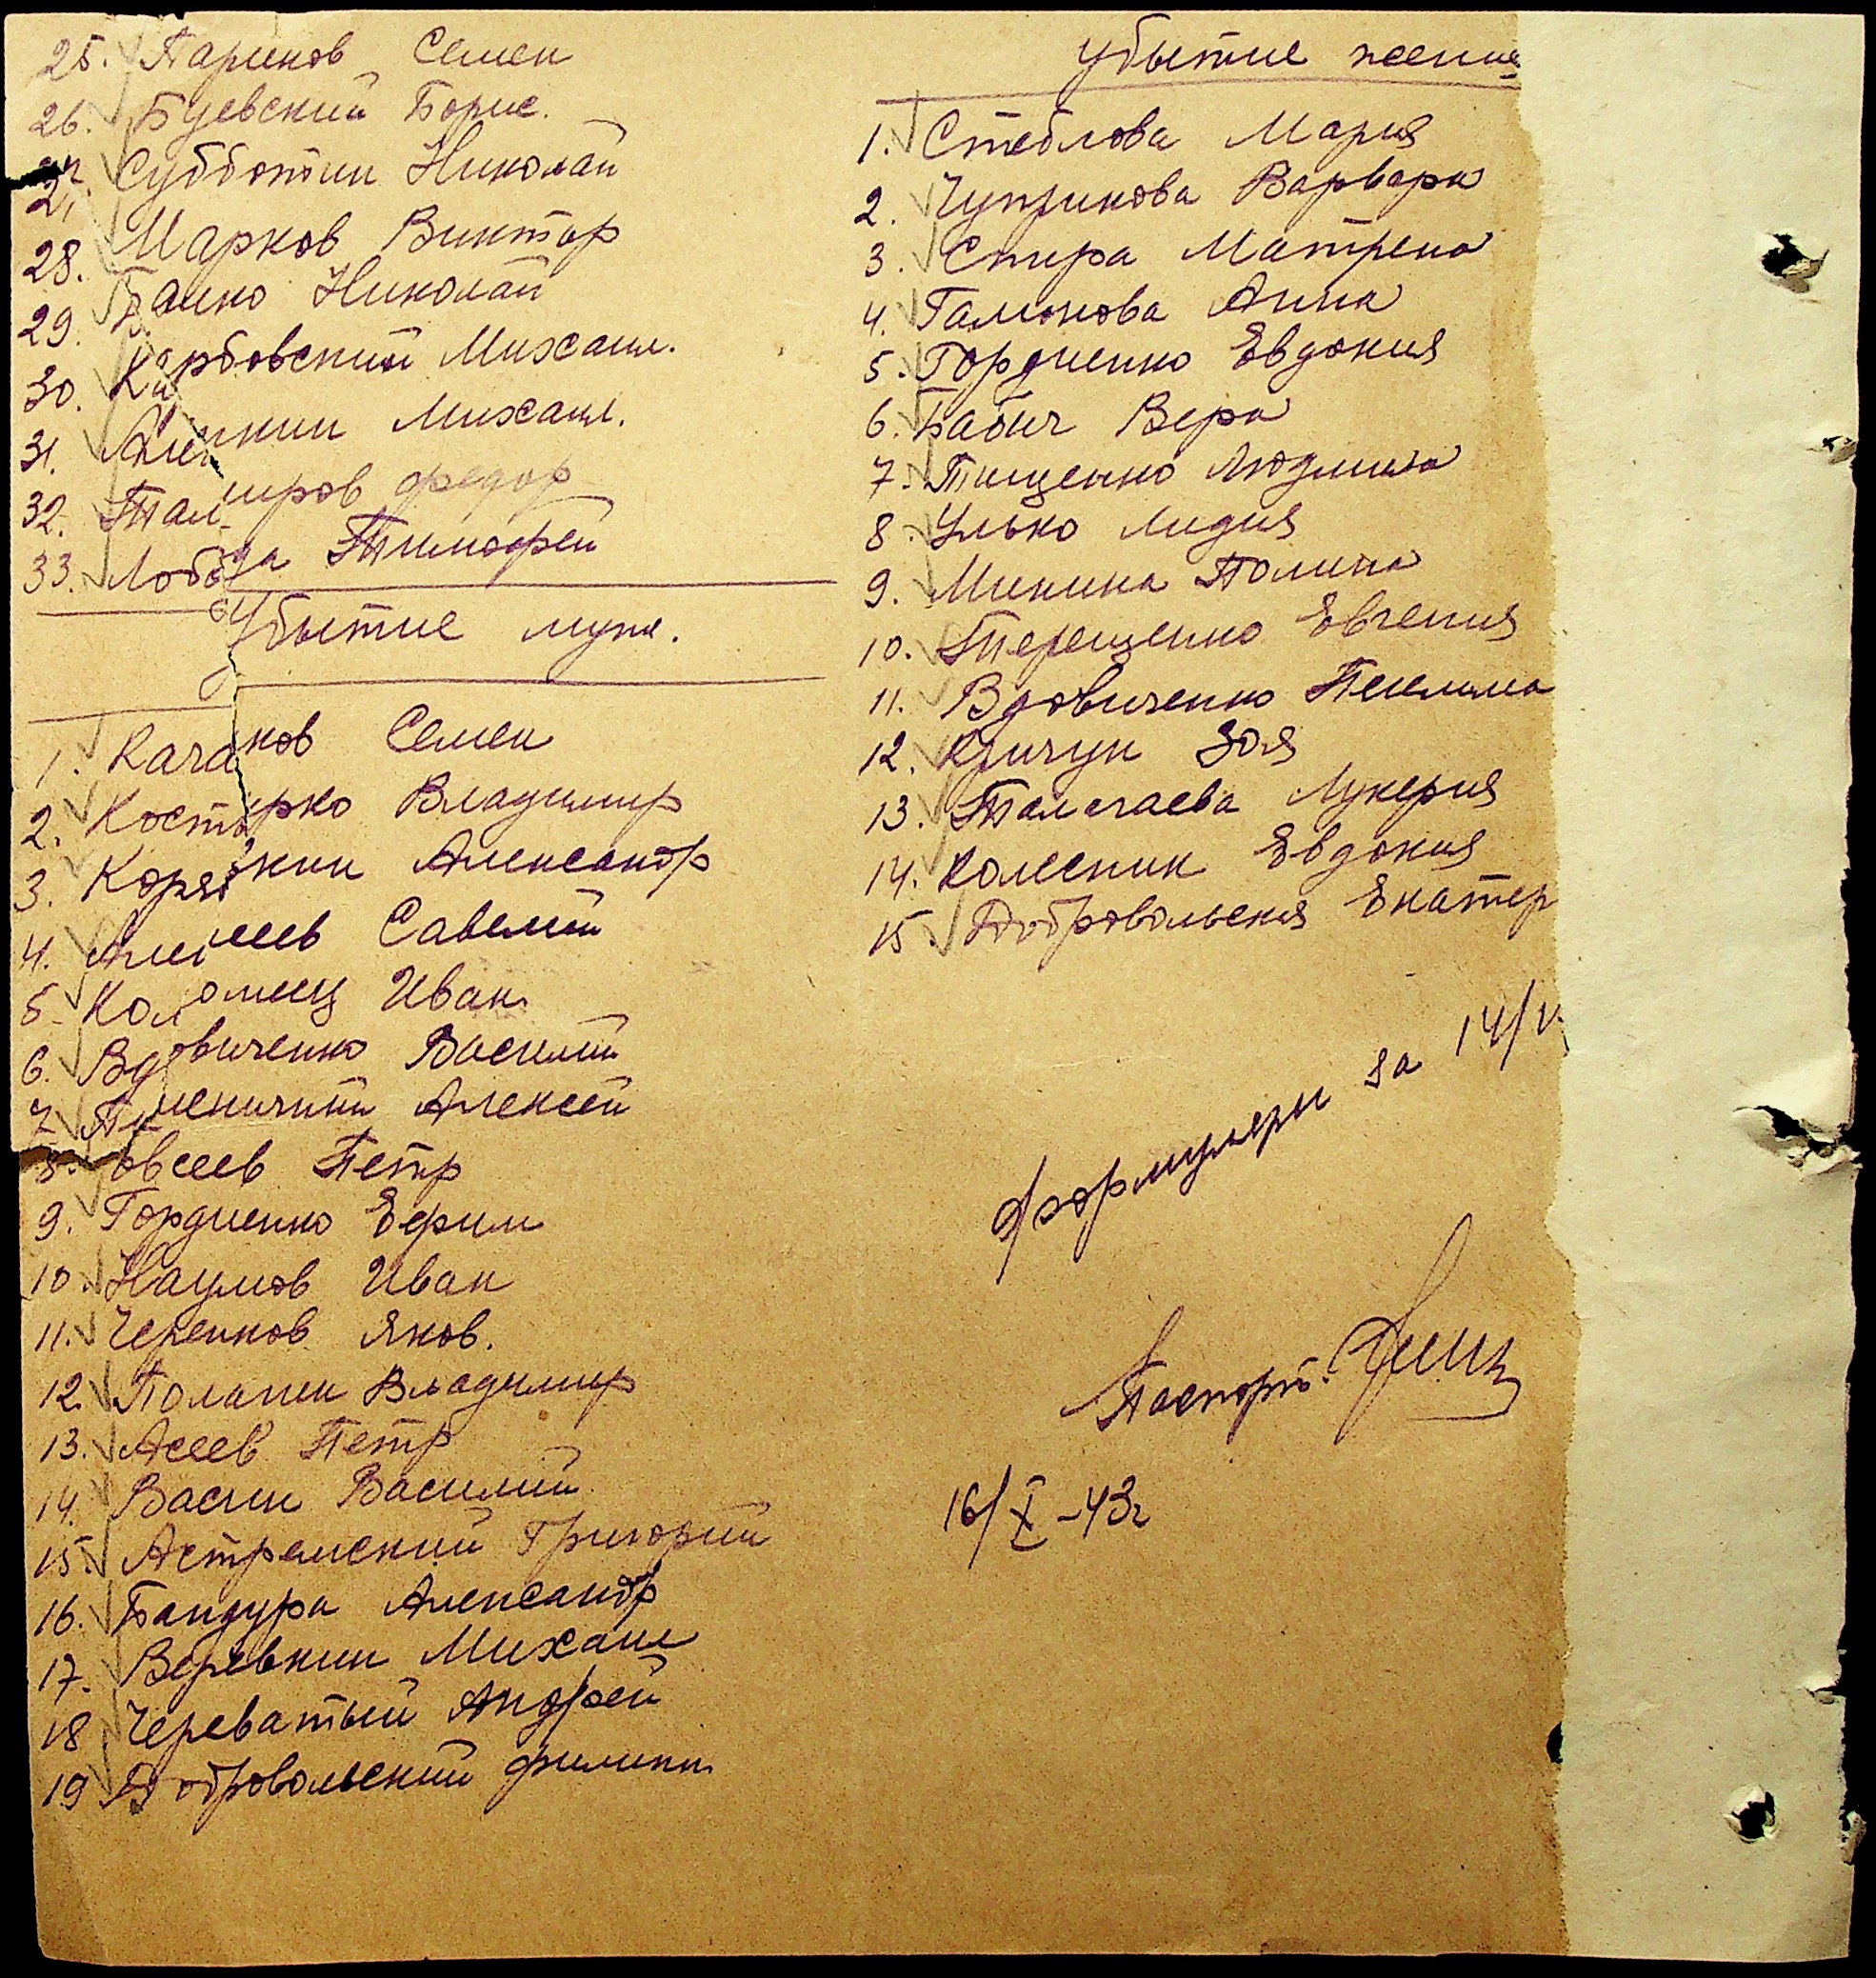 25. Париков Семен
26. Буевский Борис.
27. Субботин Николай
28. Марков Виктор
29. Бацко Николай
30. Карбовский Михаил.
31. Михаил.
32. Федор
33. Лобода Тимофей
Убытие муж.
1. Качанов Семен
2. Костырко Владимир
3. Корякин Александр
4. Савелий
5. Коломиец Иван
6. Вдовиченко Василий
7. Пшеничный Алексей
8. Овсеев Петр
9. Гордиенко Ефим
10. Наумов Иван
11. Черенков Яков.
12. Полапен Владимир
13. Асеев Петр
14. Васин Василий
15. Астремский Григорий
16. Бандура Александр
17. Веревкин Михаил
18 Череватый Андрей
19 Добровольский Филипп
Убытие женщ
1. Стеблова Мария
2. Чуприкова Варвара
3. Спира Матрена
4. Галионова Анна
5. Гордиенко Евдокия
6. Бабич Вера
7. Тищенко Людмила
8. Улько Лидия
9. Микина Полина
10. Терещенко Евгения
11. Вдовиченко Пелагея
12. Кричун Зоя
13. Талагаева Лукерия
14. Колесник Евдокия
15. Добровольская Екатер
Формуляры за 14/V
Паспорт.
16/X-43г